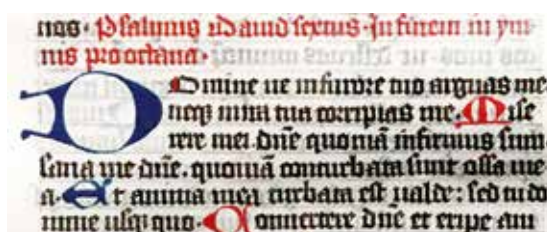 nos. Psalmus dauid sextus. In finem in ym
nis pro octaua.
Domine ne in furore tuo arguas me
neq; in ira tua corripias me. Mise
rere mei dn̄e quoniā infirmus sum
sana me dn̄e. quoniā conturbata sunt ossa me
a. Et anima mea turbata est ualde: sed tu do
mine usq; quo. Conuertere dn̄e et eripe ani